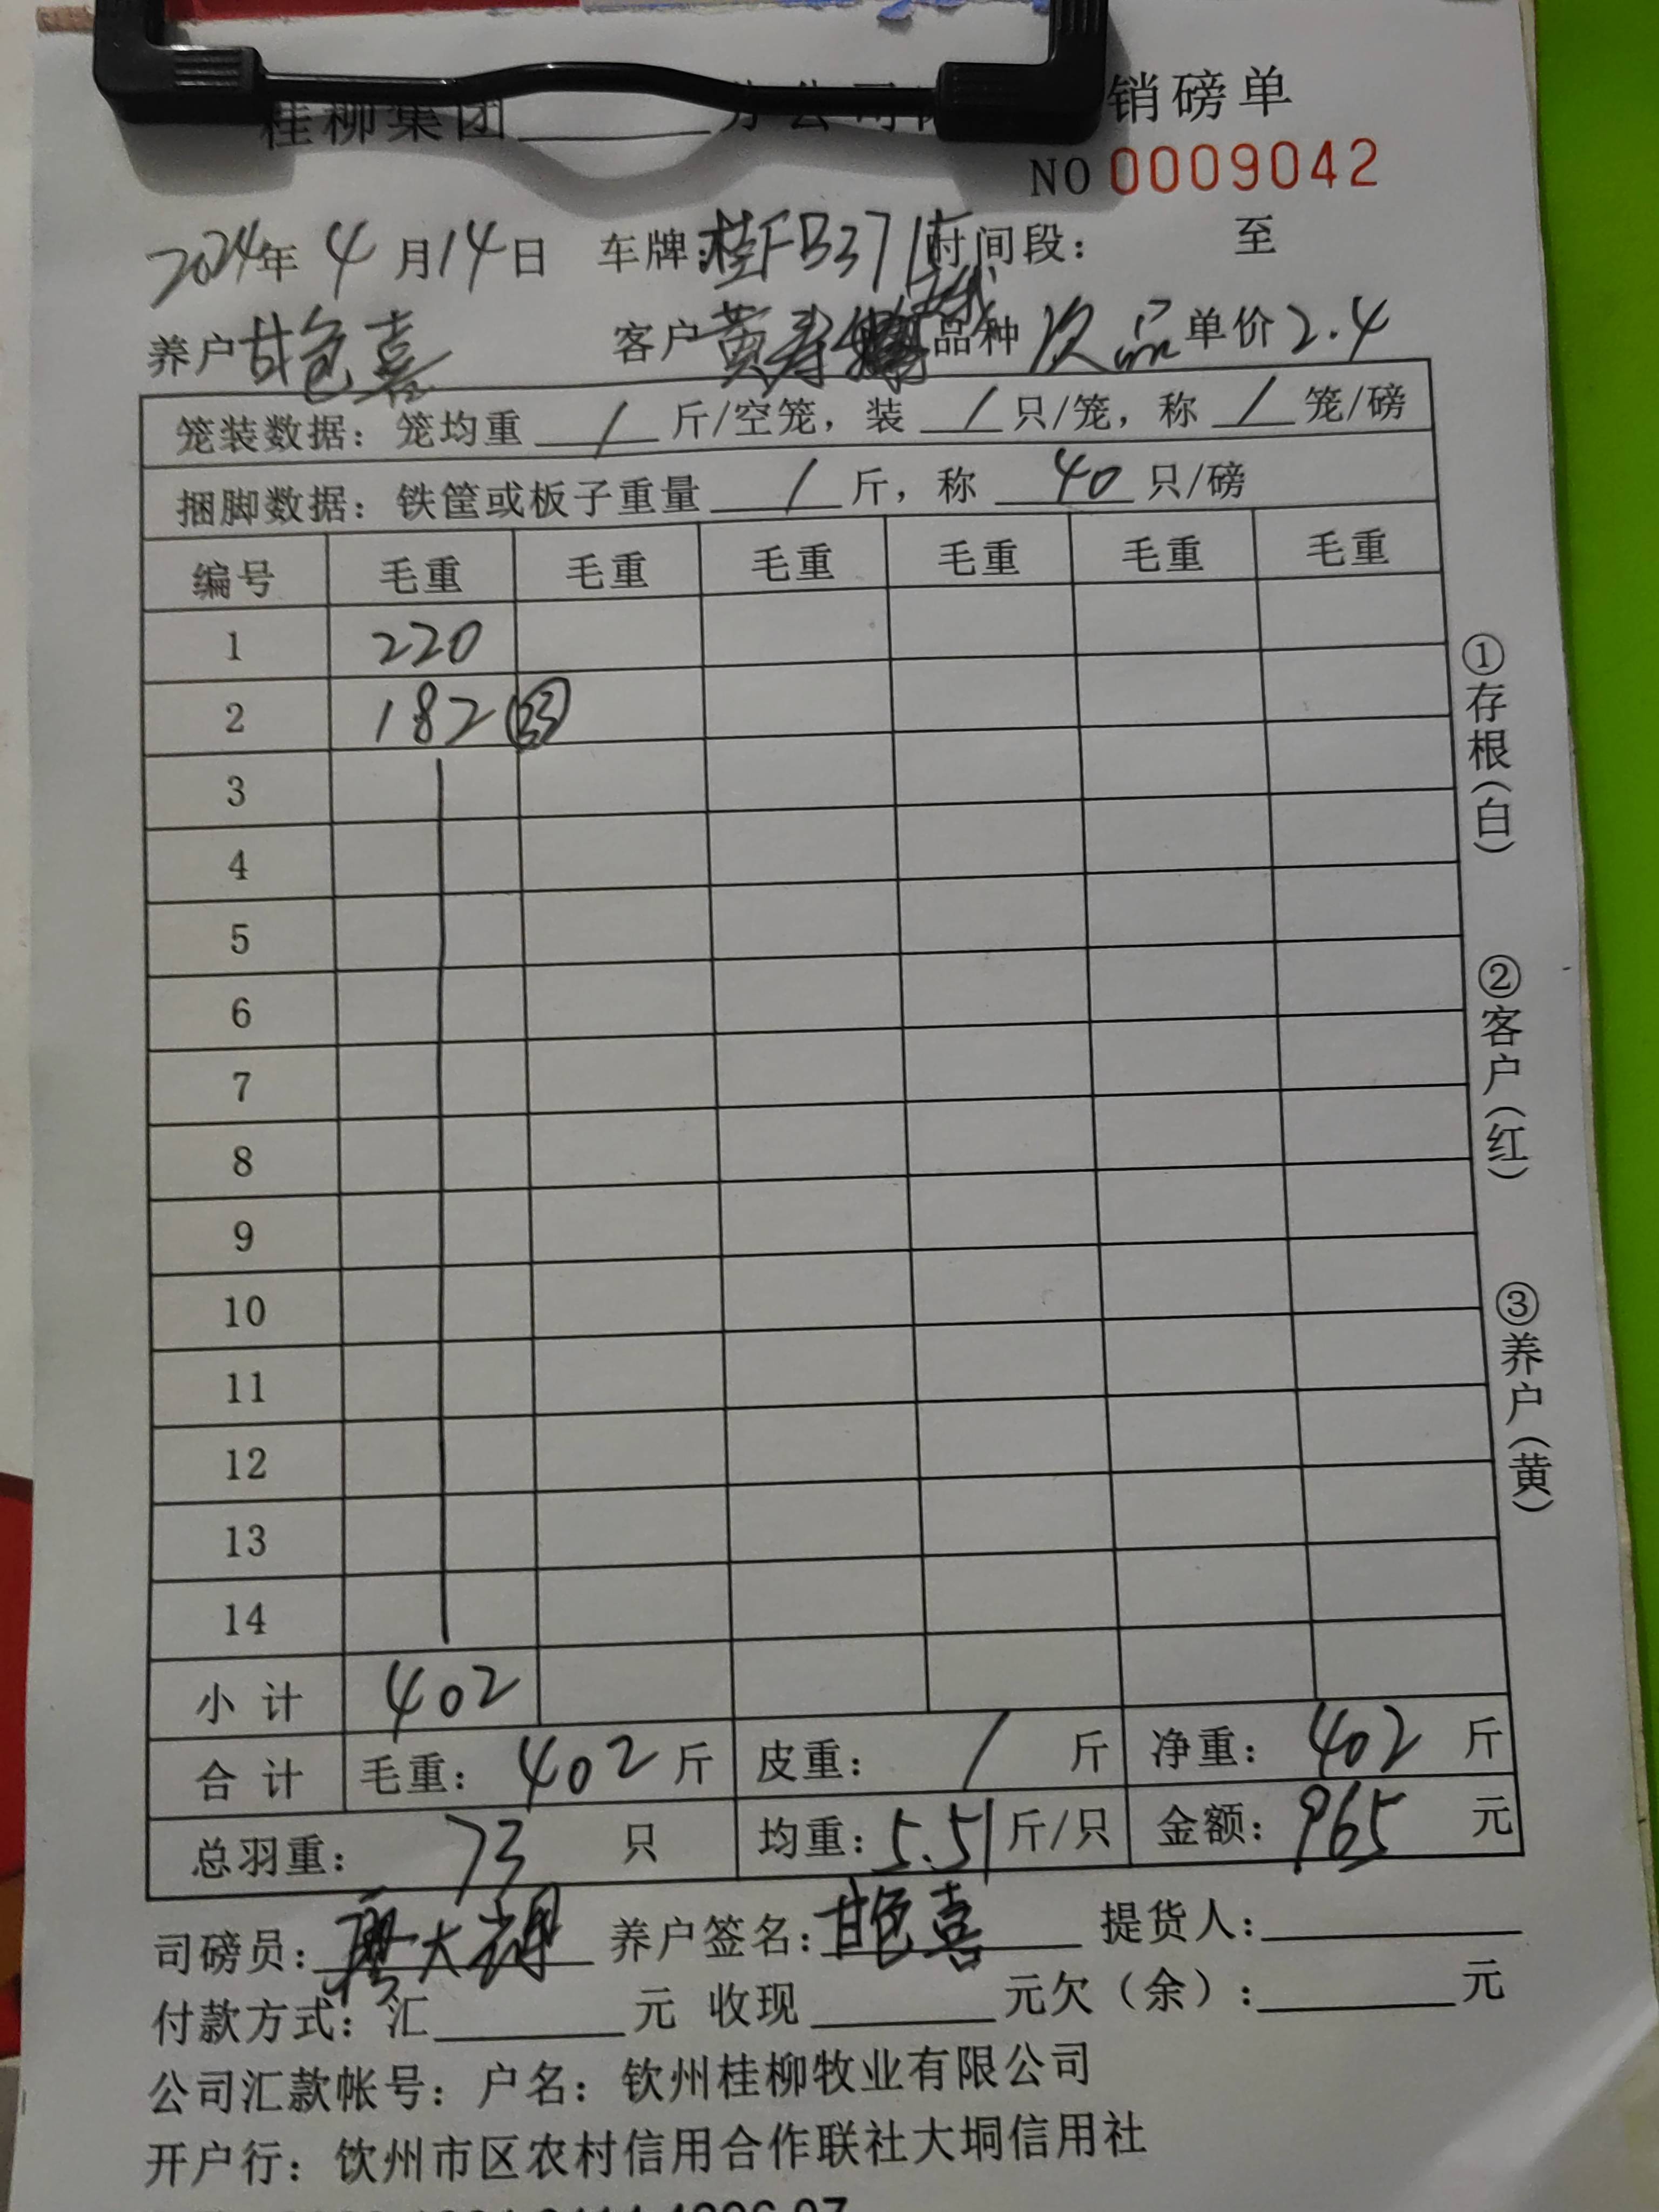 桂柳集团______分公司 销磅单
NO 0009042
2024年 4月14日 车牌:桂FB371 时间段: 至
养户 甘色喜 客户 黄寿 品种 次品 单价 2.4
笼装数据: 笼均重 / 斤/空笼, 装 / 只/笼, 称 / 笼/磅
捆脚数据: 铁筐或板子重量 / 斤, 称 40 只/磅
编号 毛重 毛重 毛重 毛重 毛重 毛重
1 220
2 182 (33)
3
4
5
6
7
8
9
10
11
12
13
14
小计 402
合计 毛重: 402 斤 皮重: / 斤 净重: 402 斤
总羽重: 73 只 均重: 5.51 斤/只 金额: 965 元
司磅员: 大 养户签名: 甘色喜 提货人:
付款方式: 汇______元 收现______元欠(余):______元
公司汇款帐号: 户名: 钦州桂柳牧业有限公司
开户行: 钦州市区农村信用合作联社大垌信用社
①存根(白)
②客户(红)
③养户(黄)